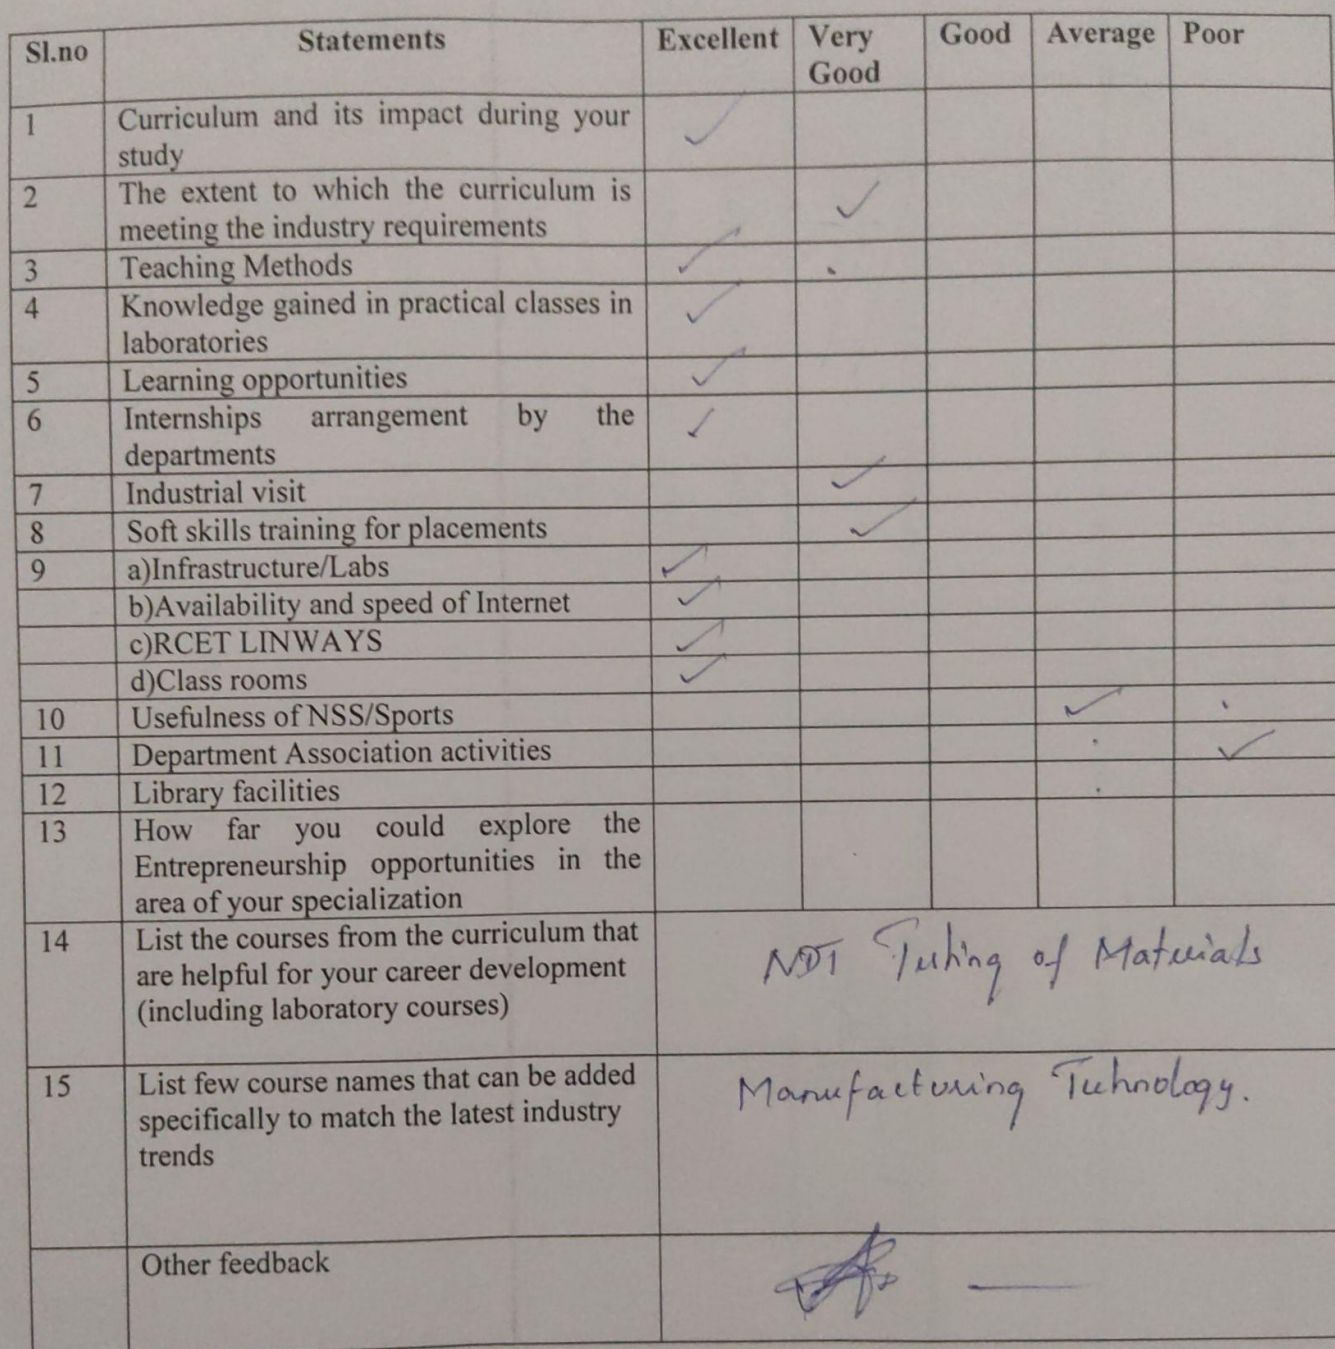 Sl.no Statements Excellent Very Good Good Average Poor
1 Curriculum and its impact during your
study ✓
2 The extent to which the curriculum is
meeting the industry requirements ✓
3 Teaching Methods ✓
4 Knowledge gained in practical classes in
laboratories ✓
5 Learning opportunities ✓
6 Internships arrangement by the
departments ✓
7 Industrial visit ✓
8 Soft skills training for placements ✓
9 a)Infrastructure/Labs ✓
b)Availability and speed of Internet ✓
c)RCET LINWAYS ✓
d)Class rooms ✓
10 Usefulness of NSS/Sports ✓
11 Department Association activities ✓
12 Library facilities
13 How far you could explore the
Entrepreneurship opportunities in the
area of your specialization
14 List the courses from the curriculum that
are helpful for your career development
(including laboratory courses)
NDT Testing of Materials
15 List few course names that can be added
specifically to match the latest industry
trends
Manufacturing Technology.
Other feedback —